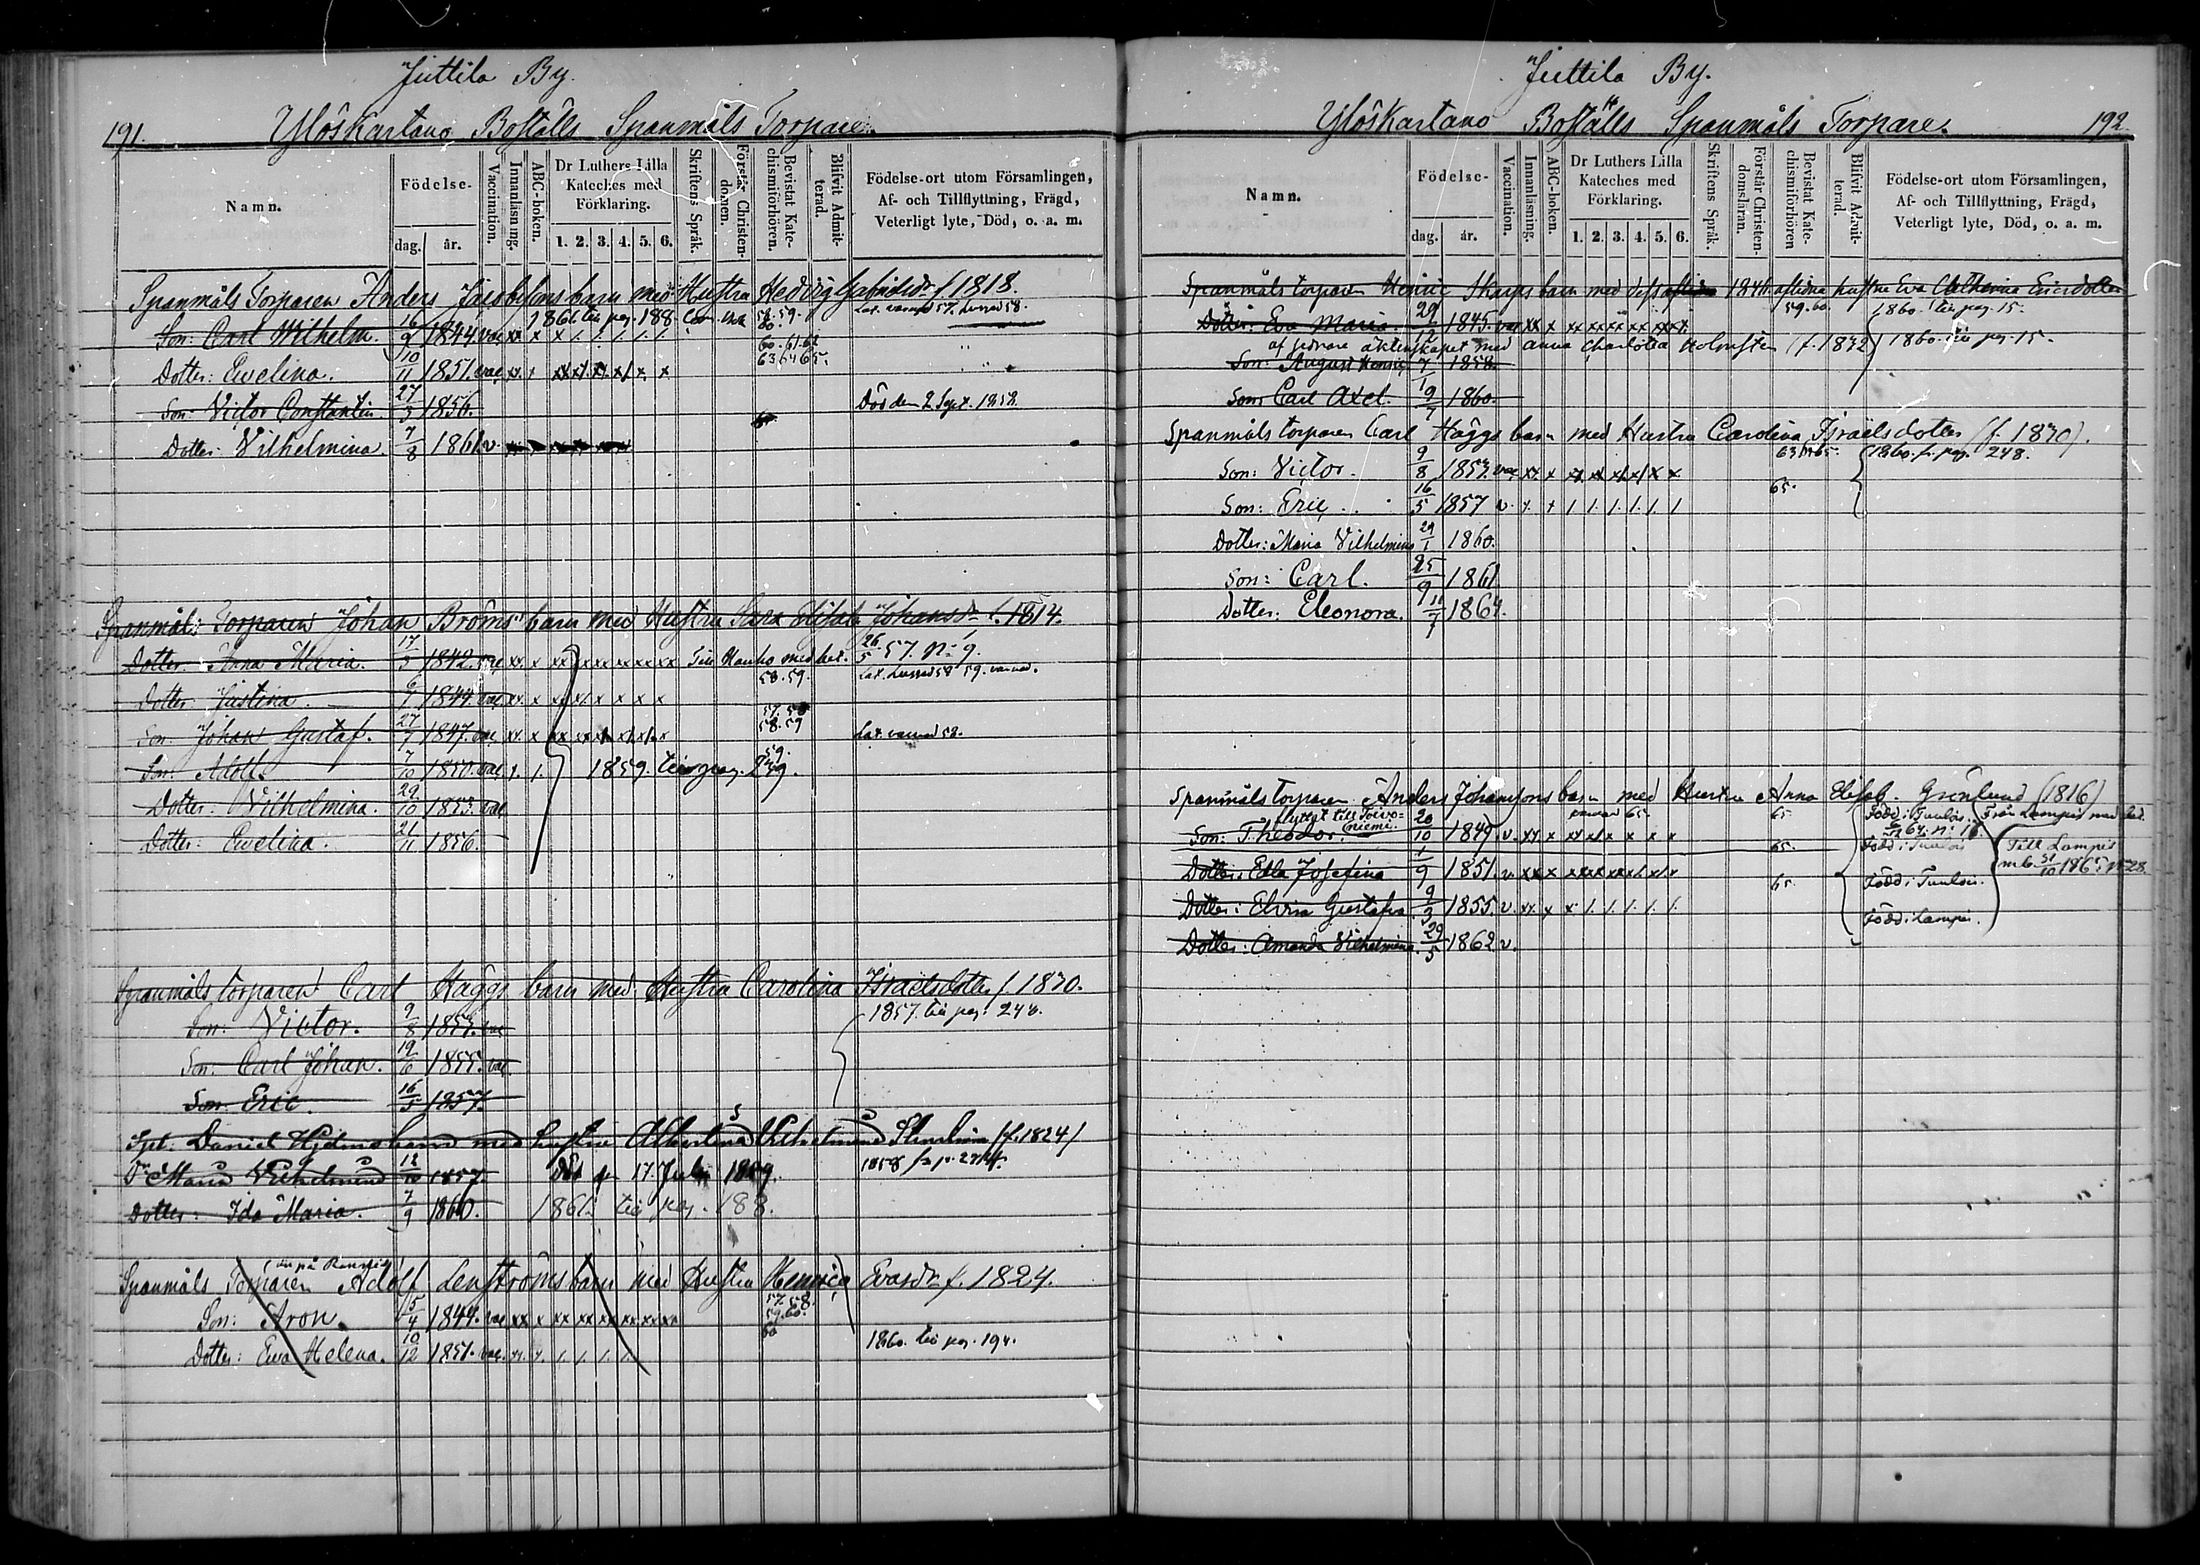 Juttila By.
191. Ylöskartano Boställs Spanmåls Torpare.
Namn.
Födelse-
dag. år.
Vaccination.
Innanläsning.
ABC-boken.
Dr Luthers Lilla Kateches med Förklaring.
1. 2. 3. 4. 5. 6.
Skriftens Språk.
Förstår Christendomen.
Bevistat Katechismiförhören.
Blifvit Admitterad.
Födelse-ort utom Församlingen, Af- och Tillflyttning, Frägd, Veterligt lyte, Död, o. a. m.
Spanmåls Torparen Anders Jacobssons barn med Hustru Hedvig f. 1818.
1861 till pag. 188
58. 59. 60.
Son: Carl Wilhelm. 16/2 1844. vac xx x x 1. 1. 1. 1. 1.
60. 61. 62
63 64 65.
Dotter: Ewelina. 10/11 1851. vac xx. x
Son: Victor Constantin 27/3 1856. Död den 2 Sept. 1858.
Dotter: Vilhelmina. 7/8 1861. v
Spanmåls Torparen Johan Broms barn med Hustru Sara Elisab. Johansdr f. 1814.
Dotter: Anna Maria. 17/3 1842. vac xx. x Till Hauho med bet. 26/5 57. No 9.
58. 59.
Dotter: Justina. 6/7 1844. vac xx. x
58. 59
Son: Johan Gustaf. 27/7 1847. vac xx. x
Son: Adolf. 7/10 1850. vac x. 1. 1859. till pag. 249.
Dotter: Vilhelmina. 29/10 1853. vac
Dotter: Ewelina. 21/11 1856.
Spanmåls torparen Carl Häggs barn med Hustru Carolina Israelsdotter f. 1830.
1857. till pag. 248.
Son: Victor. 9/8 1853. vac
Son: Carl Johan. 19/6 1855. vac
Son: Eric. 16/5 1857.
Spt. Daniel Hjelms barn med hustru Albertina Vilhelmina (f. 1824)
Dr Maria Vilhelmina 12/10 1857. Död d. 17 Juli 1859. 1858 fr p.
Dotter: Ida Maria. 7/9 1860. 1861. till pag. 188.
Spanmåls Torparen Adolf Lenströms barn med Hustru Henrica Evasdr f. 1824.
57. 58.
59. 60.
Son: Aron. 15/4 1844. vac xx x xx xx xx xx xx xx
60
1860. till pag. 194.
Dotter: Ewa Helena. 10/12 1851. vac. x. x. 1. 1. 1. 1.
Juttila By.
Ylöskartano Boställs Spanmåls Torpare. 192.
Namn.
Födelse-
dag. år.
Vaccination.
Innanläsning.
ABC-boken.
Dr Luthers Lilla Kateches med Förklaring.
1. 2. 3. 4. 5. 6.
Skriftens Språk.
Förstår Christendomsläran.
Bevistat Katechismiförhören
Blifvit Admitterad.
Födelse-ort utom Församlingen, Af- och Tillflyttning, Frägd, Veterligt lyte, Död, o. a. m.
Spanmåls torparen Henric Skarps barn med dess 1846 aflidna hustru Eva Catharina Ericsdotter
59. 60. 1860. till pag. 15.
Dotter: Eva Maria. 29/12 1845. vac xx x
af senare äktenskapet med Anna Charlotta Holmsten (f. 1832) 1860. till pag. 15.
Son: August Henric 7/1 1858.
Son: Carl Axel. 9/7 1860.
Spanmåls torparen Carl Häggs barn med Hustru Carolina Israelsdotter (f. 1830).
63 64 65. 1860. fr. pag. 248.
Son: Victor. 9/8 1853. vac xx. x
65.
Son: Eric. 16/5 1857 v. x. x 1 1. 1. 1. 1. 1
Dotter: Maria Vilhelmina 29/1 1860.
Son: Carl. 25/9 1861
Dotter: Eleonora. 11/7 1864.
Spanmåls torparen Anders Johanssons barn med Hustru Anna Elisab. Grönlund (1816)
flyttat till Toivoniemi.
65. Född i Tuulois. Från Lampis med bet. 64. No 16.
Son: Theodor. 20/10 1849 v. xx x
65. Född i Tuulois
Till Lampis m. b. 31/10 1865. No 28.
Dotter: Edla Josefina 1/9 1851. v. xx x
65. Född i Tuulois.
Dotter: Elvira Gustafva 9/3 1855. v. xx. x x 1. 1. 1. 1. 1.
Född i Lampis.
Dotter: Amanda Vilhelmina. 29/5 1862 v.